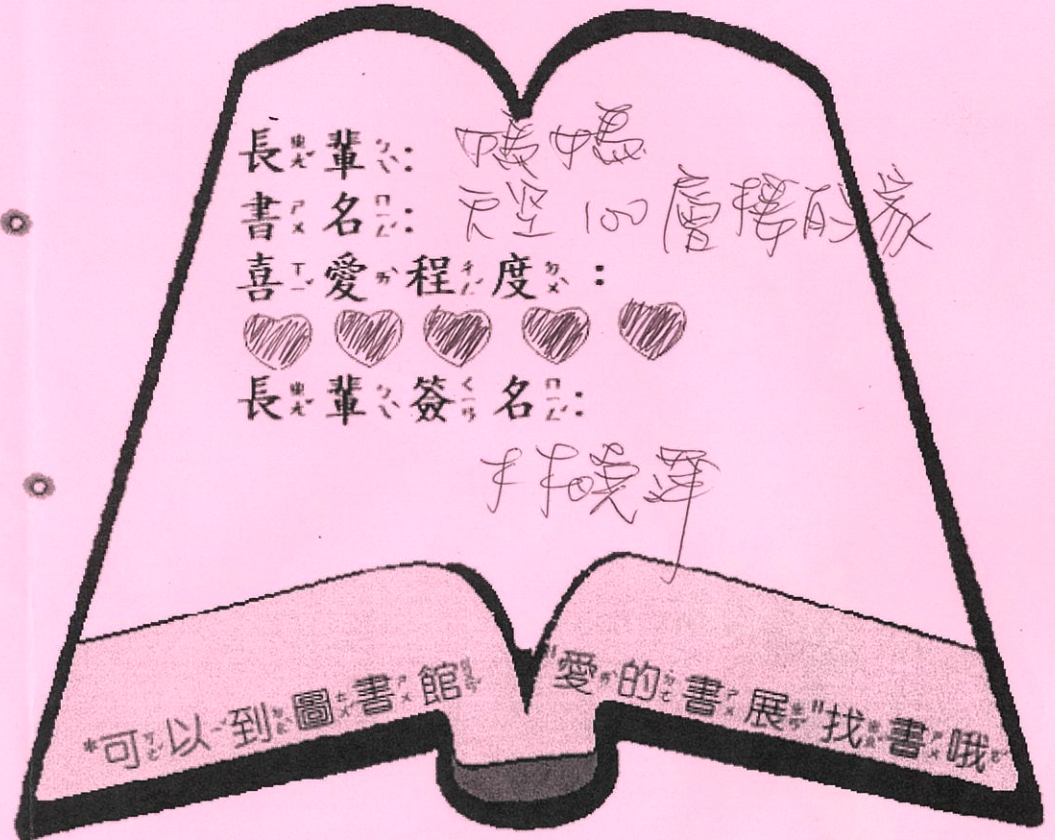 長輩: 媽媽
書名: 天空100層樓的家
喜愛程度:
長輩簽名:
林曉
*可以到圖書館"愛的書展"找書哦